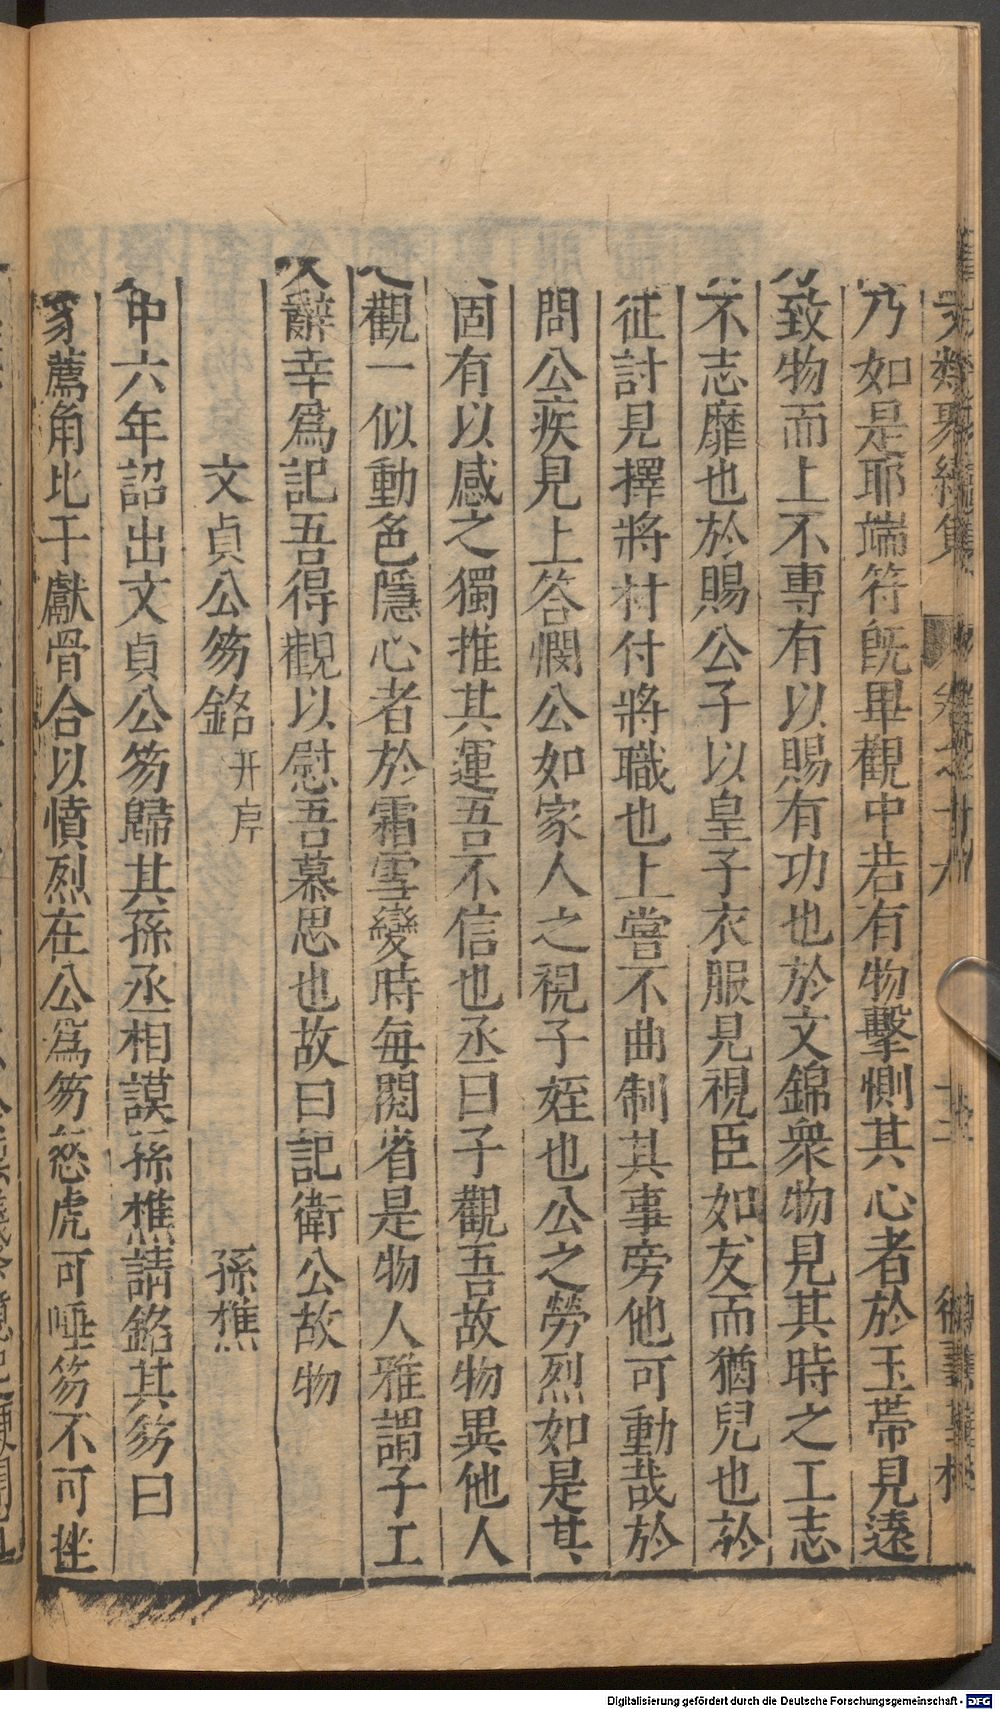 乃如是耶端符旣畢觀中若有物擊惻其心者於玉帶見遠
致物而上不專有以賜有功也於文錦衆物見其時之工志
不志靡也於賜公子以皇子衣服見視臣如友而猶兒也於
征討見擇將材付將職也上嘗不曲制其事旁他可動哉於
問公疾見上答憫公如家人之視子姪也公之勞烈如是其
固有以感之獨推其運吾不信也丞曰子觀吾故物異他人
觀一似動色隱心者於霜雪變時每閱省是物人雅謂子工
辭幸爲記吾得觀以慰吾慕思也故曰記衛公故物
文貞公笏銘并序 孫樵
中六年詔出文貞公笏歸其孫丞相謨孫樵請銘其笏曰
豸薦角比干獻骨合以憤烈在公爲笏慈虎可唾笏不可挫
文類聚續集 卷之十八 十三
Digitalisierung gefördert durch die Deutsche Forschungsgemeinschaft - DFG